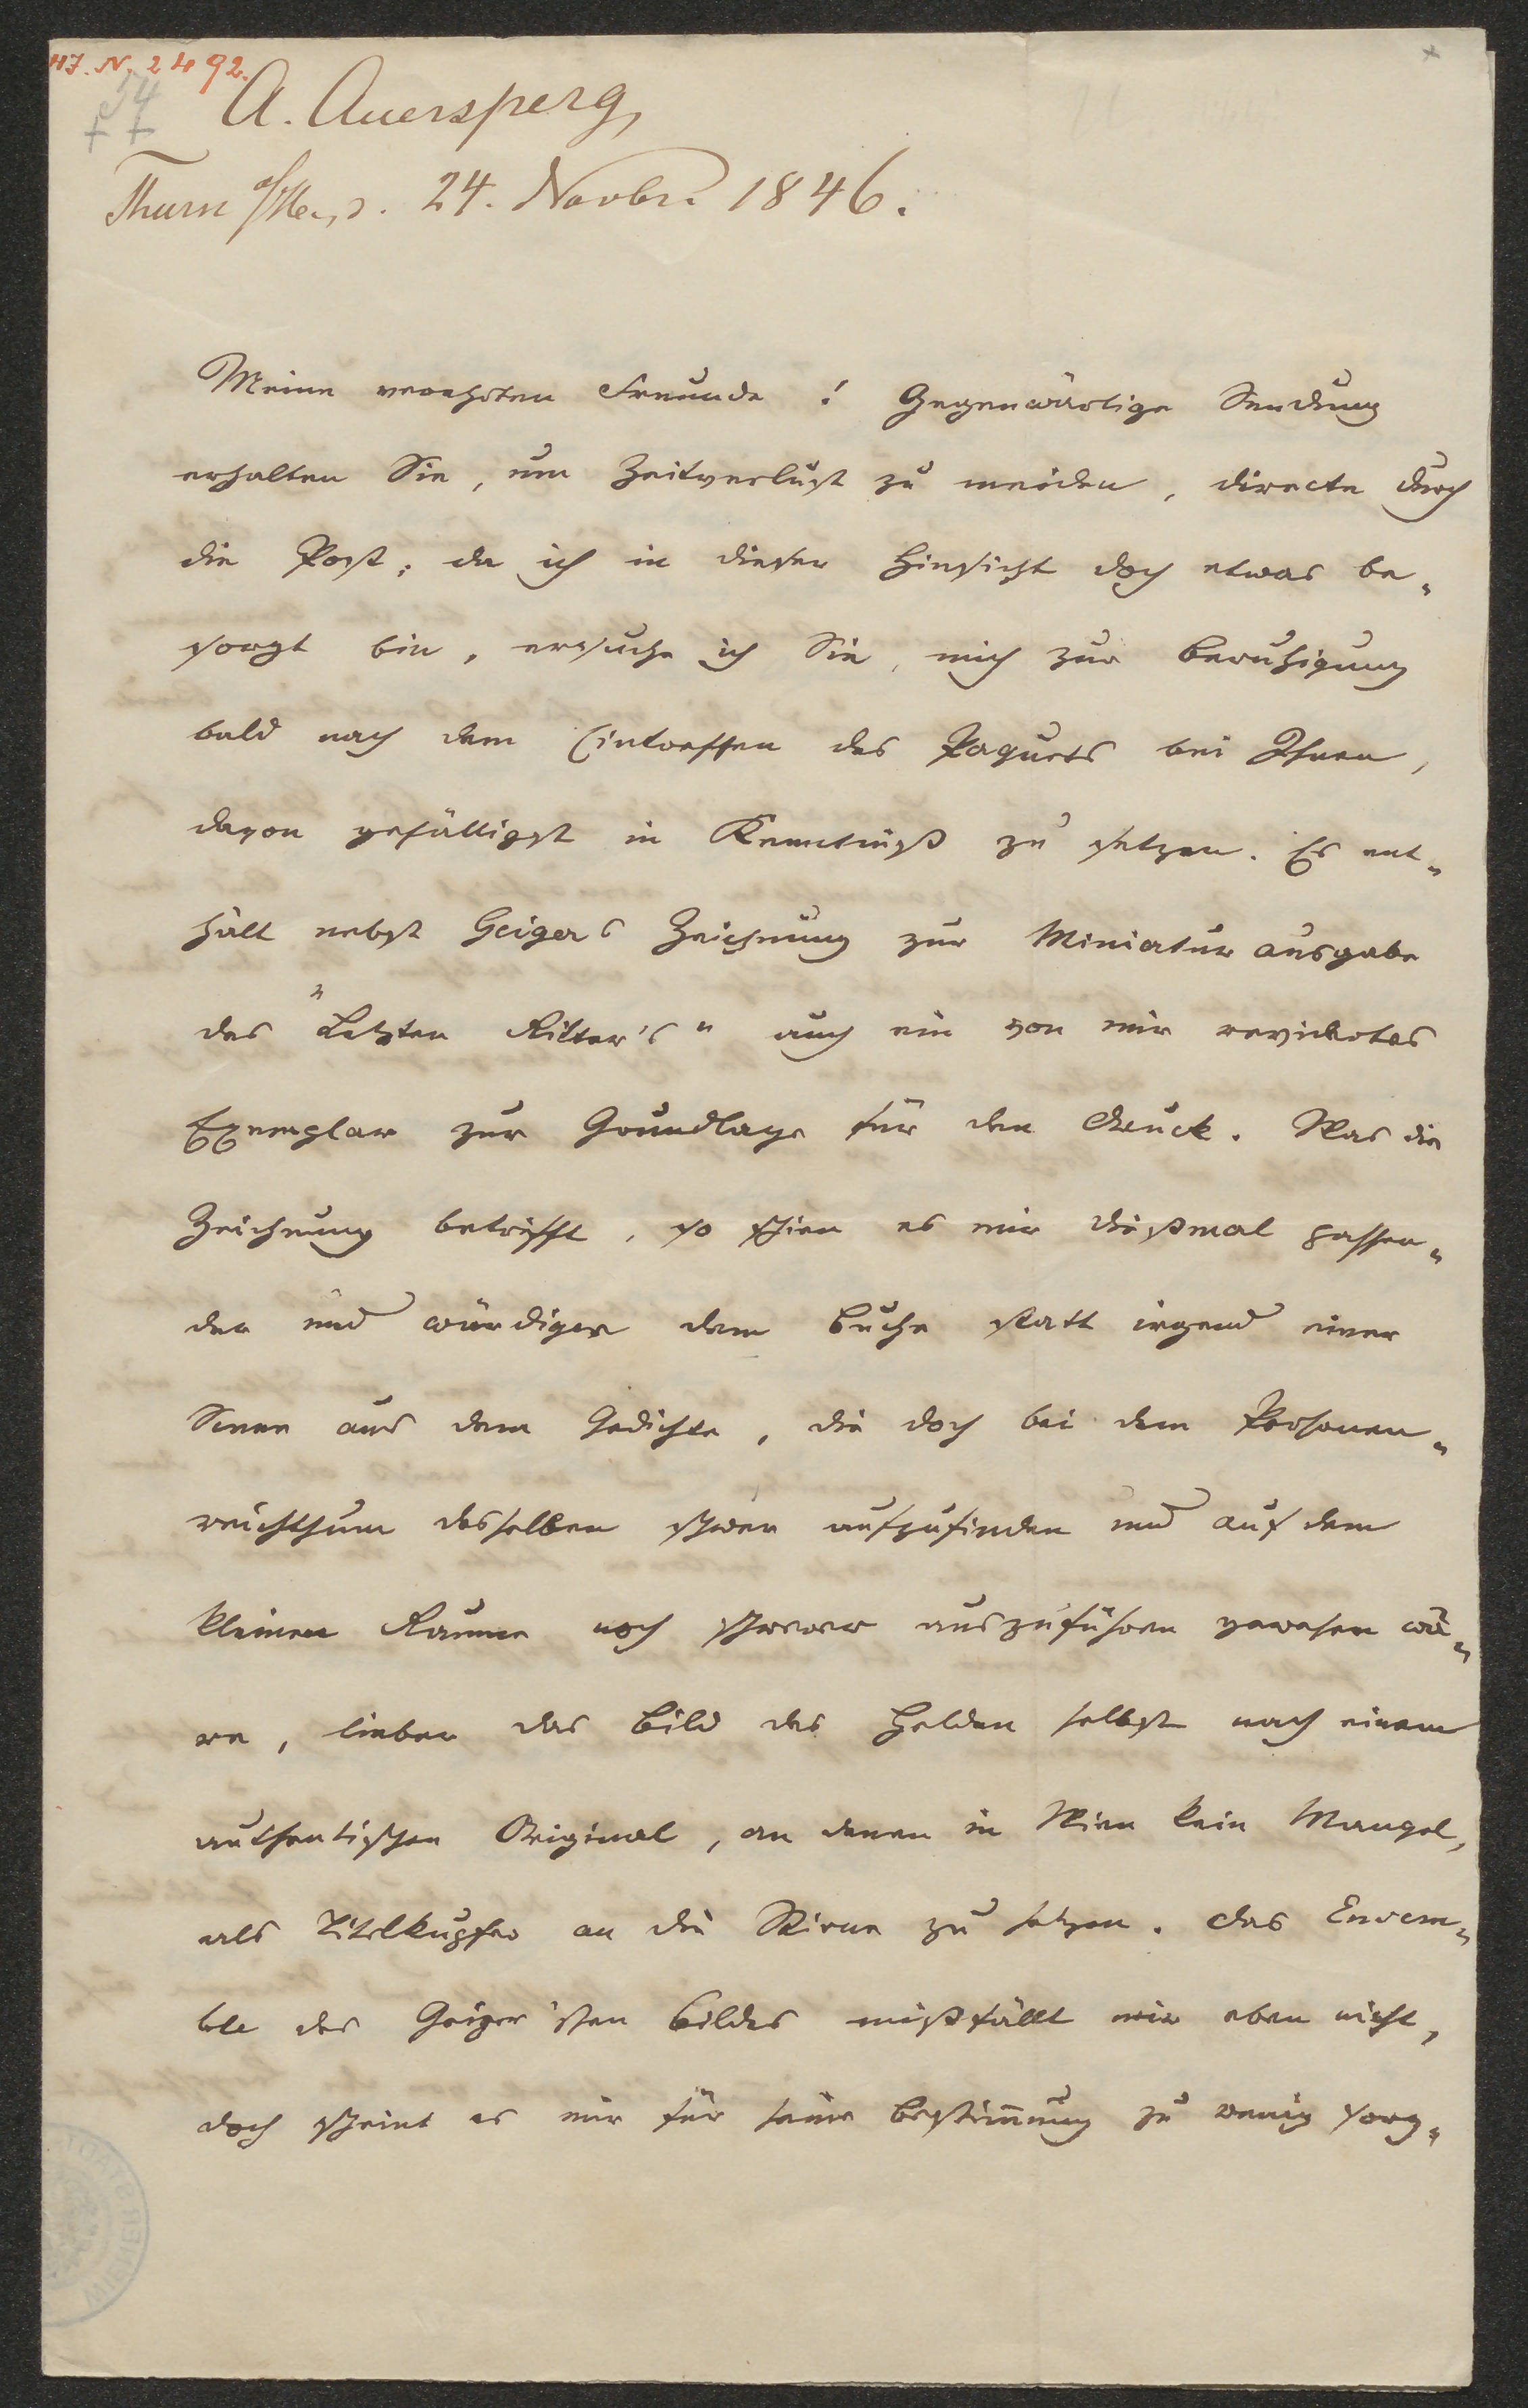 H.I.N. 2492.
54
A. Auersperg,
Thurn a/Hard. 24. Novbr. 1846.
Meine verehrten Freunde! Gegenwärtige Sendung
erhalten Sie, um Zeitverlust zu meiden, directe durch
die Post; da ich in dieser Hinsicht doch etwas be-
sorgt bin, ersuche ich Sie, mich zur Beruhigung
bald nach dem Eintreffen des Paquets bei Ihnen,
davon gefälligst in Kenntniß zu setzen. Es ent-
hält nebst Geigers Zeichnung zur Miniaturausgabe
des "Letzten Ritter's" auch ein von mir revidirtes
Exemplar zur Grundlage für den Druck. Was die
Zeichnung betrifft, so schien es mir dießmal passen-
der und würdiger dem Buche statt irgend einer
Scene aus dem Gedichte, die doch bei dem Personen-
reichthum desselben schwer aufzufinden und auf dem
kleinen Raume noch schwerer auszuführen gewesen wä-
re, lieber das Bild des Helden selbst nach einem
authentischen Original, an denen in Wien kein Mangel,
als Titelkupfer an die Stirne zu setzen. Das Ensem-
ble des Geiger'schen Bildes mißfällt mir eben nicht,
doch scheint es mir für seine Bestimmung zu wenig sorg-